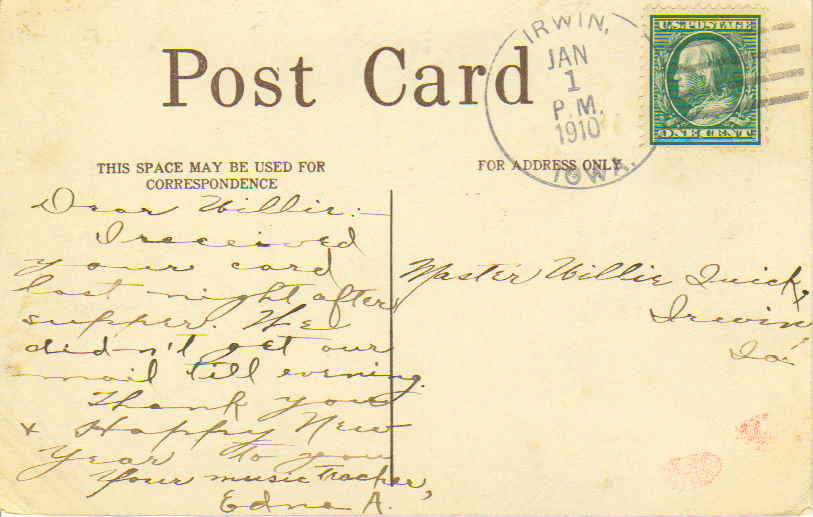 Post Card
IRWIN,
JAN
1
P.M.
1910
IOWA.
U.S. POSTAGE
ONE CENT
THIS SPACE MAY BE USED FOR
CORRESPONDENCE
FOR ADDRESS ONLY
Dear Willie:-
I received
your card
last night after
supper. We
didn't get our
mail till evening.
Thank you
+ Happy New
Year to you
Your music teacher,
Edna A.
Master Willie Quick,
Irwin,
Ia.